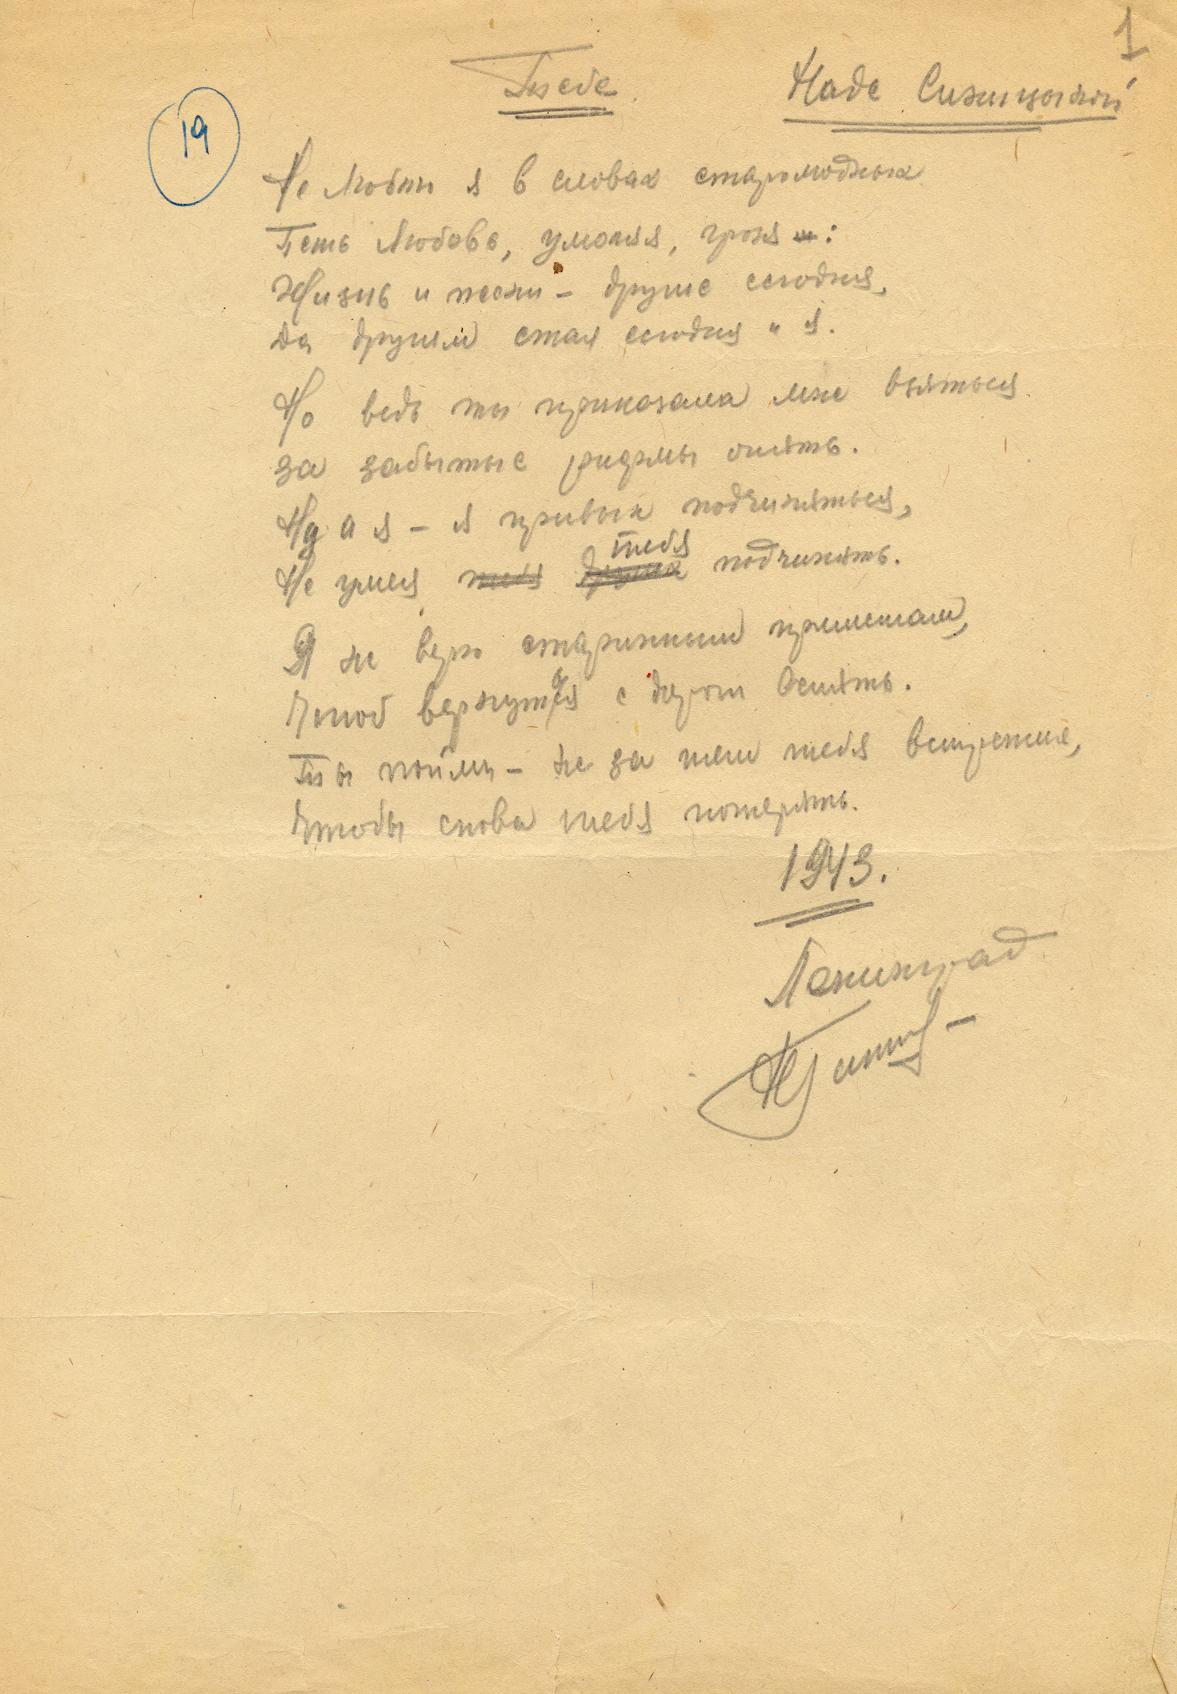 1
Тебе
Наде Синицыной
19
Не люблю я в словах старомодных
Петь любовь, умоляя, грозя:
Жизнь и песни – другие сегодня,
Да другим стал сегодня и я.
Но ведь ты приказала мне взяться
За забытые рифмы опять.
Ну а я – я привык подчиняться,
Не умея тебя подчинять.
Я не верю старинным приметам,
Чтоб вернуться с дороги вспять.
Ты пойми – не за тем тебя встретил,
Чтобы снова тебя потерять.
1943.
Ленинград